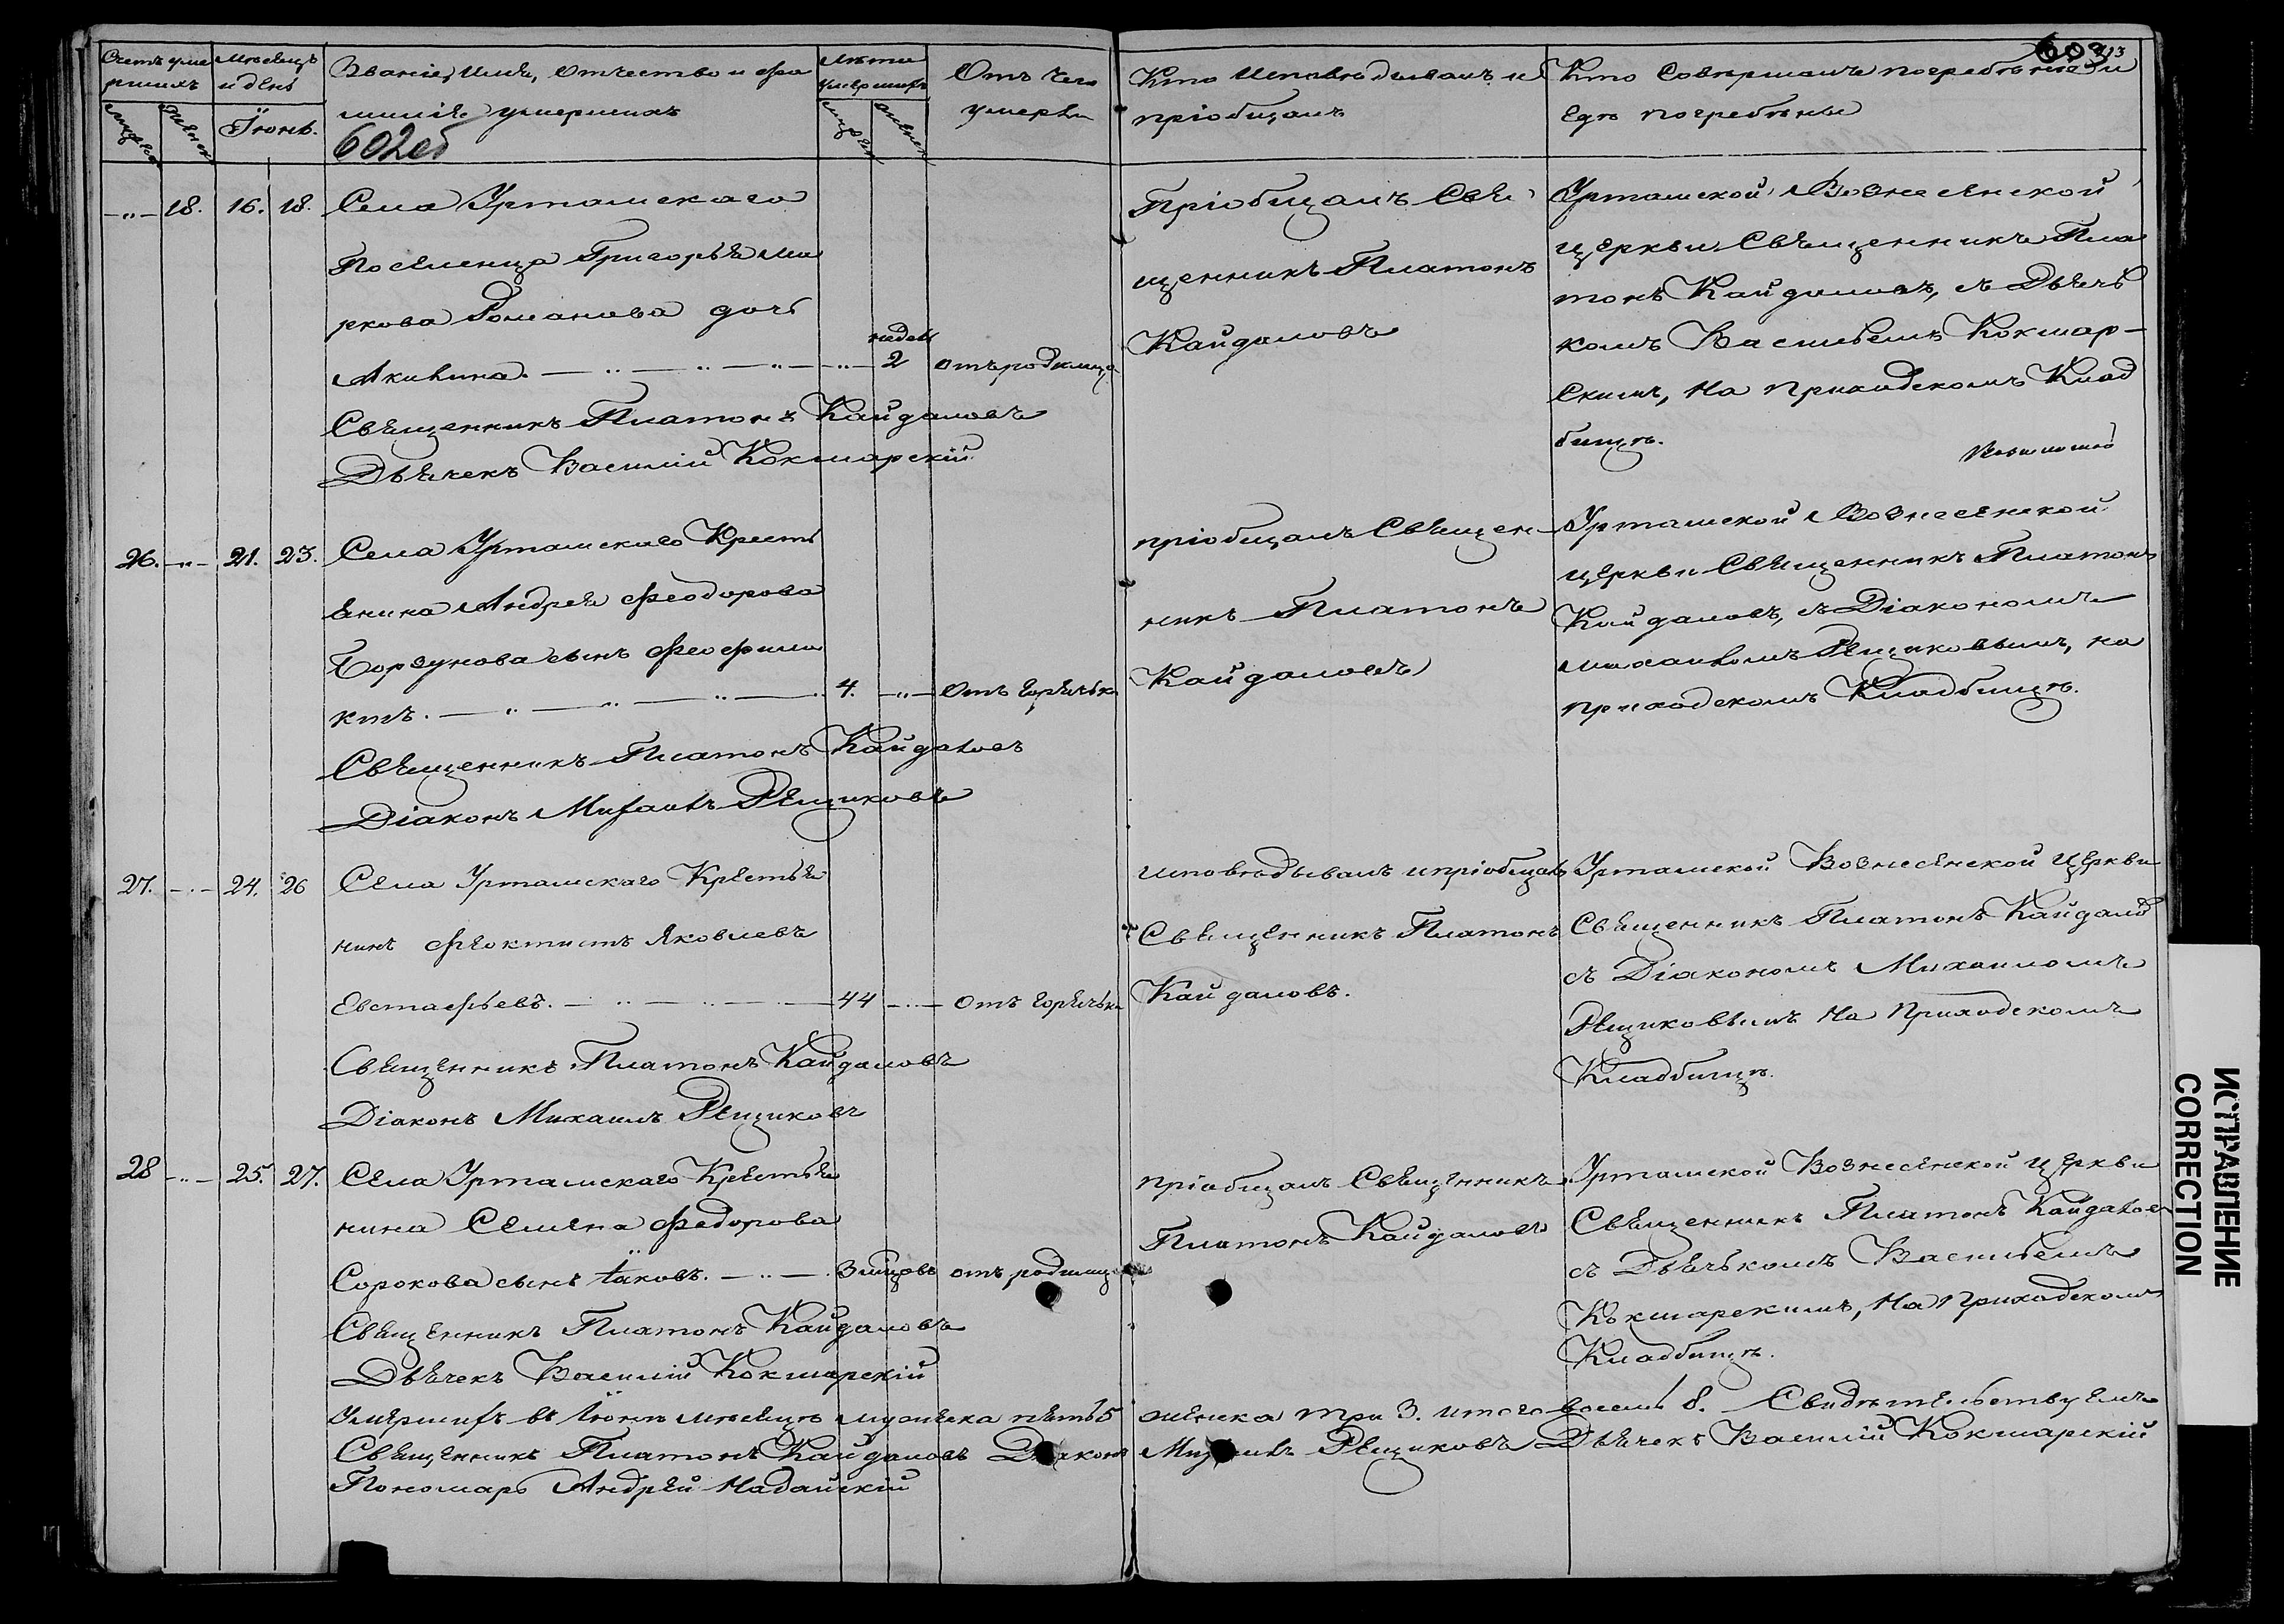 Счетъ уме
ршихъ
Мѣсяцъ
и день
Званіе, имя, отчество и фа
милія умершихъ
Лѣта
умершихъ
Отъ чего
умерли
Кто исповѣдывалъ и
пріобщалъ
Кто совершалъ погребеніе и
гдѣ погребены
603
Іюнь.
602об
18. 16. 18. Села Уртамскаго
Поселенца Григорья Ма
ркова Романова дочь
недель
Акилина. 2 отъ родимца
Священникъ Платонъ Кайдаловъ
Дьячекъ Василій Кокшарскій
Пріобщалъ Свя
щенникъ Платонъ
Кайдаловъ
Уртамской Вознесенской
церкви Священникъ Пла
тонъ Кайдаловъ, съ Дьяч
комъ Васильемъ Кокшар-
скимъ, на приходскомъ Клад
бищѣ.
26. 21. 23. Села Уртамскаго Кресть
янина Андрея Феодорова
Борзунова сынъ Феофила
ктъ. 4. Отъ горячьки
Священникъ Платонъ Кайдаловъ
Діаконъ Михаилъ Рещиковъ
пріобщалъ Священ
никъ Платонъ
Кайдаловъ
Уртамской Вознесенской
церкви Священникъ Платонъ
Кайдаловъ, съ Діакономъ
Михаиломъ Рещиковымъ, на
приходскомъ Кладбищѣ.
27. 24. 26 Села Уртамскаго Крестья
нинъ Феоктистъ Яковлевъ
Евстафьевъ. 44 Отъ горячьки
Священникъ Платонъ Кайдаловъ
Діаконъ Михаилъ Рещиковъ
исповѣдывалъ и пріобщалъ
Священникъ Платонъ
Кайдаловъ.
Уртамской Вознесенской церкви
Священникъ Платонъ Кайдаловъ
съ Діакономъ Михаиломъ
Рещиковымъ на Приходскомъ
Кладбищѣ.
28 25. 27. Села Уртамскаго Крестья
нина Семена Федорова
Сорокова сынъ Іаковъ. 3 мцовъ отъ родимца
Священникъ Платонъ Кайдаловъ
Дьячекъ Василій Кокшарскій
пріобщалъ Священникъ
Платонъ Кайдаловъ
Уртамской Вознесенской церкви
Священникъ Платонъ Кайдаловъ
съ Дьячькомъ Васильемъ
Кокшарскимъ, на Приходскомъ
Кладбищѣ.
Умершихъ въ Іюнѣ мѣсяцѣ мужеска пять 5 женска три 3. итого восемь 8. Свидѣтельствуемъ
Священникъ Платонъ Кайдаловъ Діаконъ Михаилъ Рещиковъ Дьячекъ Василій Кокшарскій
Пономарь Андрей
ИСПРАВЛЕНИЕ
CORRECTION